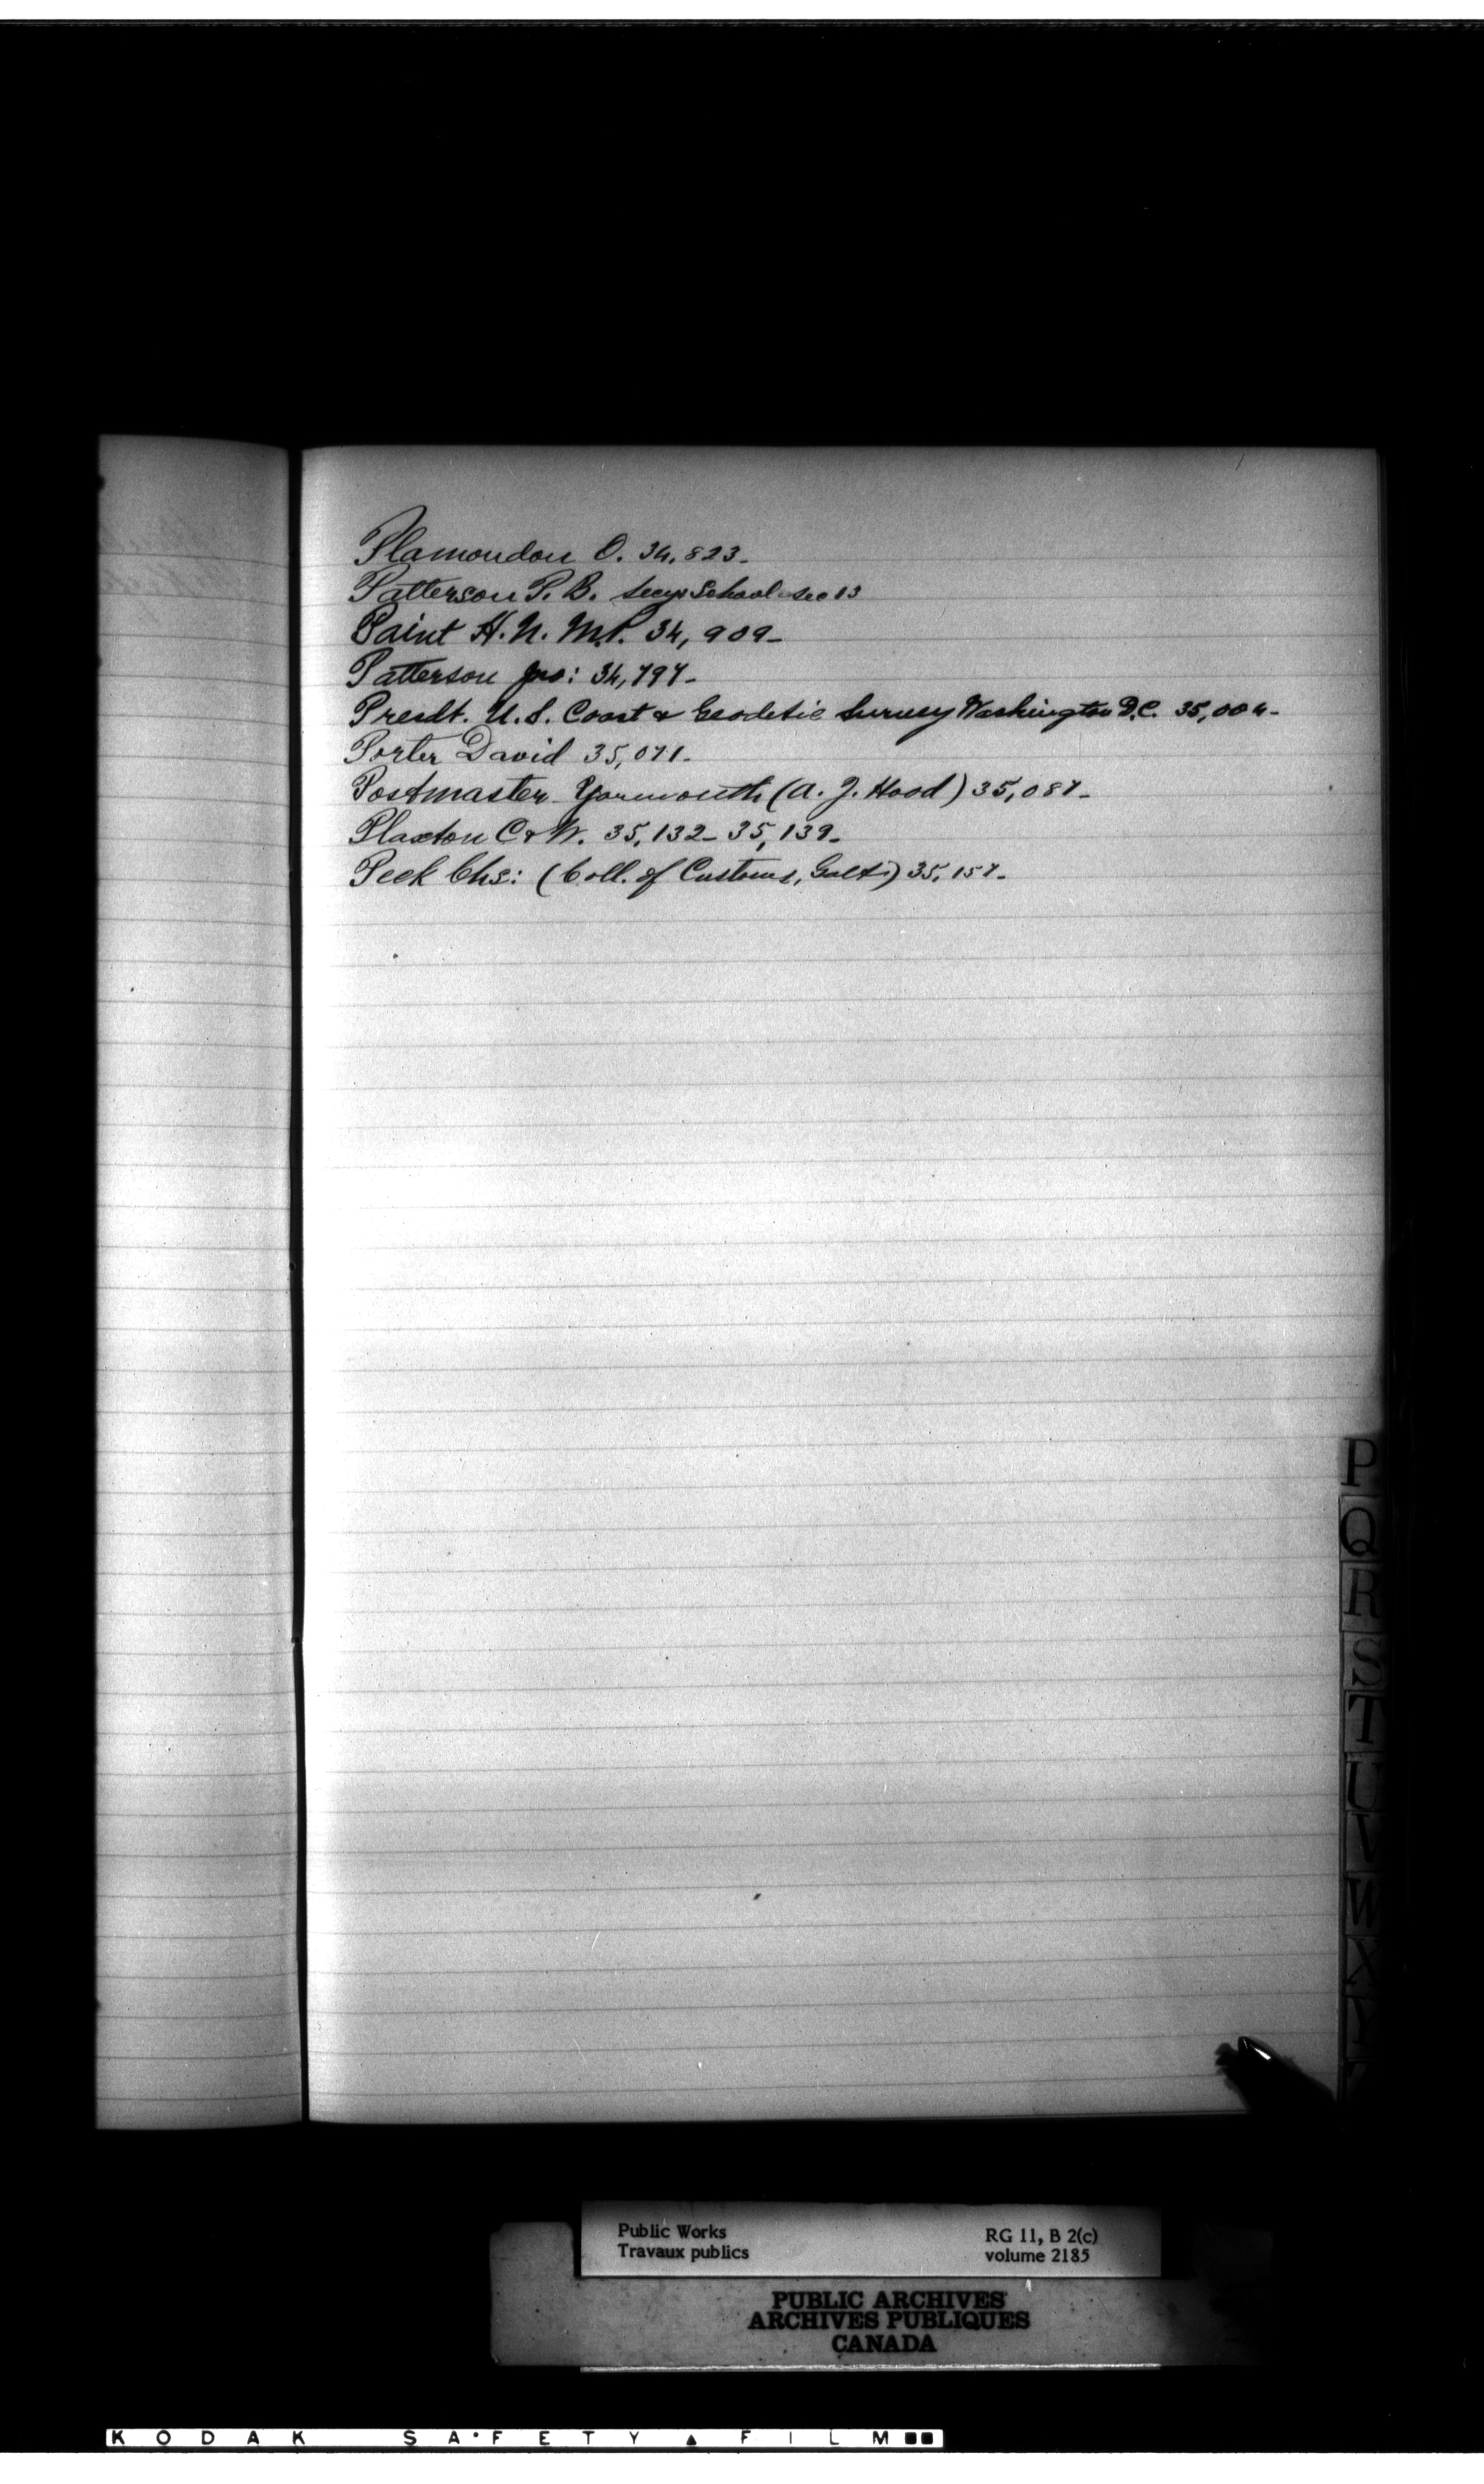 Plamondon O. 34,823-
Patterson P. B. Secy. School Sec 13
Paint H. N. M.P. 34,909-
Patterson Jno: 34,797-
Presdt. U.S. Coast & Geodetic Survey Washington D.C. 35,004-
Porter David 35,071-
Postmaster Yarmouth (A. J. Hood) 35,087-
Plaxton C & W. 35,132- 35,139-
Peek Chs: (Coll. of Customs, Galt.) 35,157-
P
Q
R
S
T
U
V
W
X
Y
Public Works
Travaux publics
RG 11, B 2(c)
volume 2185
PUBLIC ARCHIVES
ARCHIVES PUBLIQUES
CANADA
KODAK SAFETY FILM